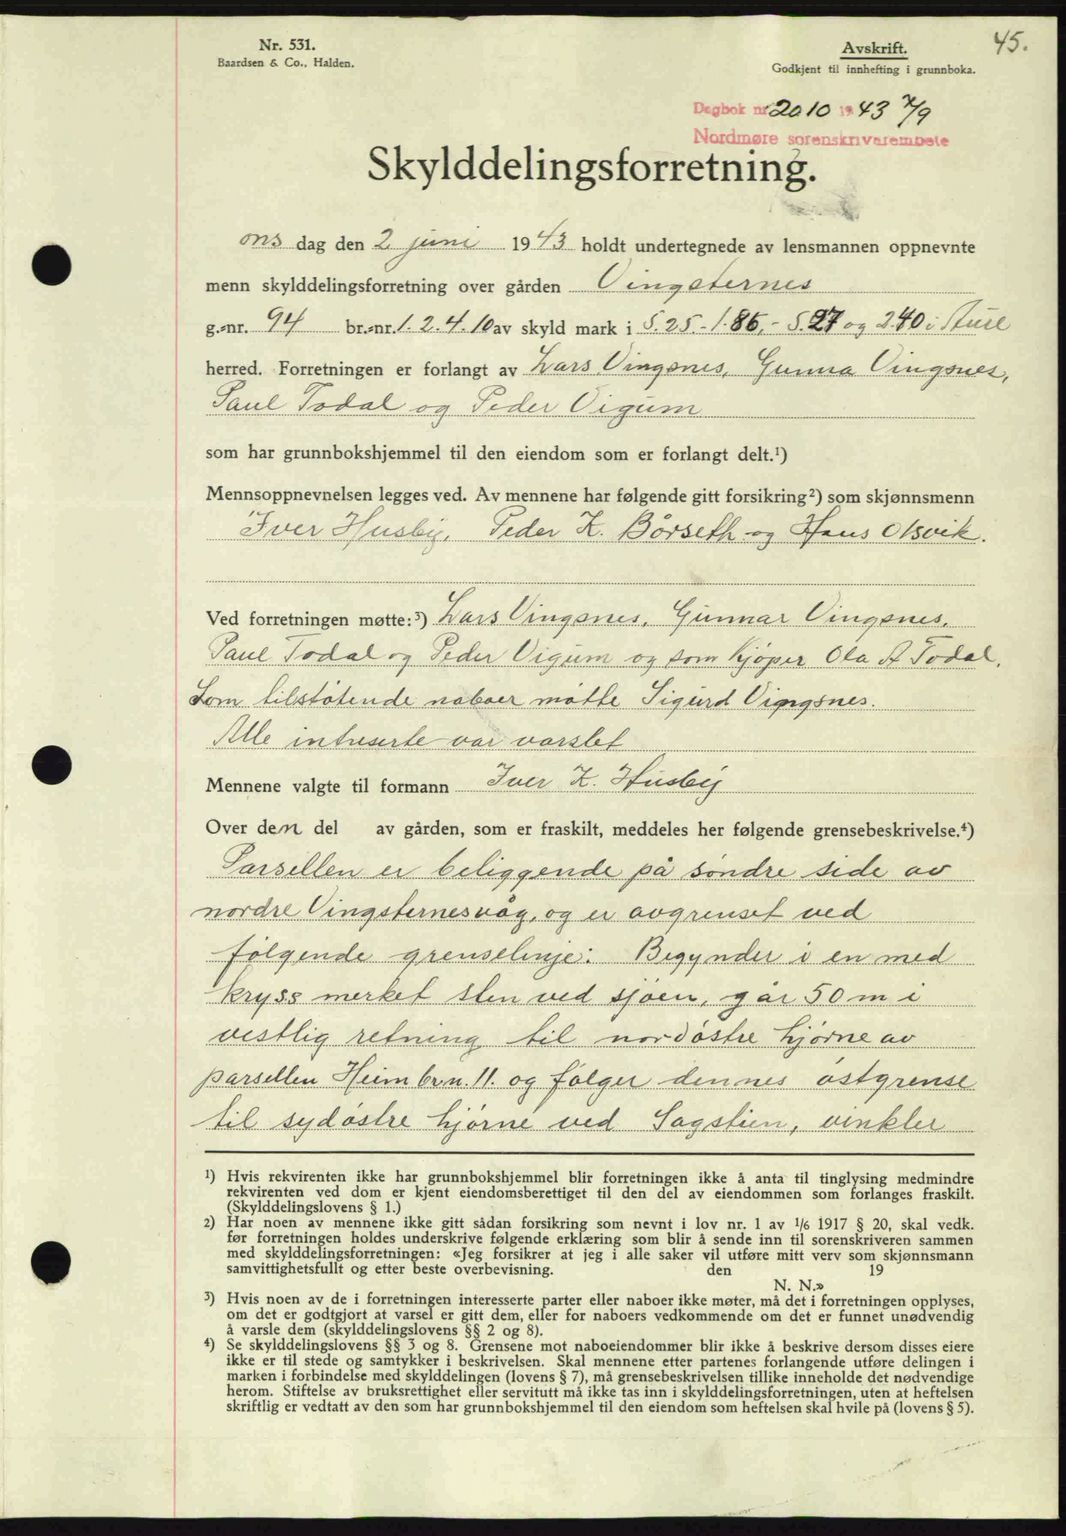 45.
Nr. 531.
Baardsen & Co., Halden.
Avskrift.
Godkjent til innhefting i grunnboka.
Dagbok nr. 2010 1943 7/9
Nordmøre sorenskriverembete
Skylddelingsforretning.
ons dag den 2 juni 1943 holdt undertegnede av lensmannen oppnevnte
menn skylddelingsforretning over gården Vingsternes
g.-nr. 94 br.-nr. 1. 2. 4. 10 av skyld mark i 5.25 - 1.86, - 5.27 og 2.40 i Aure
herred. Forretningen er forlangt av Lars Vingsnes, Gunna Vingsnes,
Paul Todal og Peder Vigum
som har grunnbokshjemmel til den eiendom som er forlangt delt.¹)
Mennsoppnevnelsen legges ved. Av mennene har følgende gitt forsikring²) som skjønnsmenn
Iver Husby, Peder K. Børseth og Hans Olsvik.
Ved forretningen møtte:³) Lars Vingsnes, Gunnar Vingsnes,
Paul Todal og Peder Vigum og som kjøper Ola A Todal.
Som tilstøtende naboer møtte Sigurd Vingsnes.
Alle intreserte var varslet
Mennene valgte til formann Iver K. Husby
Over den del av gården, som er fraskilt, meddeles her følgende grensebeskrivelse.⁴)
Parsellen er beliggende på søndre side av
nordre Vingsternesvåg, og er avgrenset ved
følgende grenselinje: Begynder i en med
kryss merket sten ved sjøen, går 50 m i
vestlig retning til nordøstre hjørne av
parsellen Heim br.n. 11. og følger dennes østgrense
til sydøstre hjørne ved Sagstien, vinkler
¹) Hvis rekvirenten ikke har grunnbokshjemmel blir forretningen ikke å anta til tinglysing medmindre
rekvirenten ved dom er kjent eiendomsberettiget til den del av eiendommen som forlanges fraskilt.
(Skylddelingslovens § 1.)
²) Har noen av mennene ikke gitt sådan forsikring som nevnt i lov nr. 1 av 1/6 1917 § 20, skal vedk.
før forretningen holdes underskrive følgende erklæring som blir å sende inn til sorenskriveren sammen
med skylddelingsforretningen: «Jeg forsikrer at jeg i alle saker vil utføre mitt verv som skjønnsmann
samvittighetsfullt og etter beste overbevisning. den 19
N. N.»
³) Hvis noen av de i forretningen interesserte parter eller naboer ikke møter, må det i forretningen opplyses,
om det er godtgjort at varsel er gitt dem, eller for naboers vedkommende om det er funnet unødvendig
å varsle dem (skylddelingslovens §§ 2 og 8).
⁴) Se skylddelingslovens §§ 3 og 8. Grensene mot naboeiendommer blir ikke å beskrive dersom disses eiere
ikke er til stede og samtykker i beskrivelsen. Skal mennene etter partenes forlangende utføre delingen i
marken i forbindelse med skylddelingen (lovens § 7), må grensebeskrivelsen tillike inneholde det nødvendige
herom. Stiftelse av bruksrettighet eller servitutt må ikke tas inn i skylddelingsforretningen, uten at heftelsen
skriftlig er vedtatt av den som har grunnbokshjemmel til den eiendom som heftelsen skal hvile på (lovens § 5).